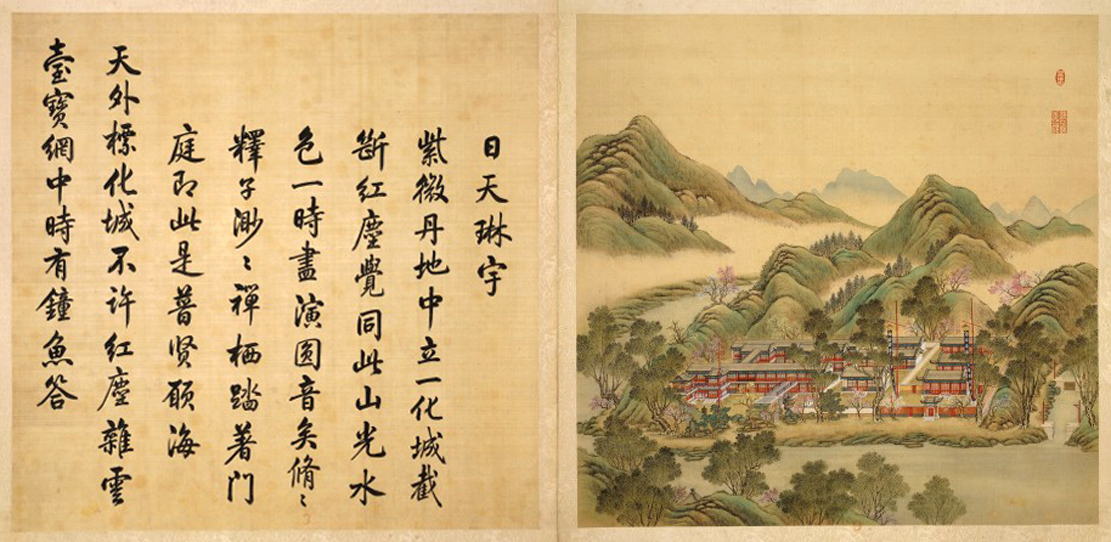 日天琳宇
紫微丹地中立一化城截
斷红塵覺同此山光水
色一時盡演圆音矣脩〻
釋子渺〻禪栖踏著门
庭即此是普贤願海
天外標化城不许红塵雜雲
臺寶網中時有鐘魚答